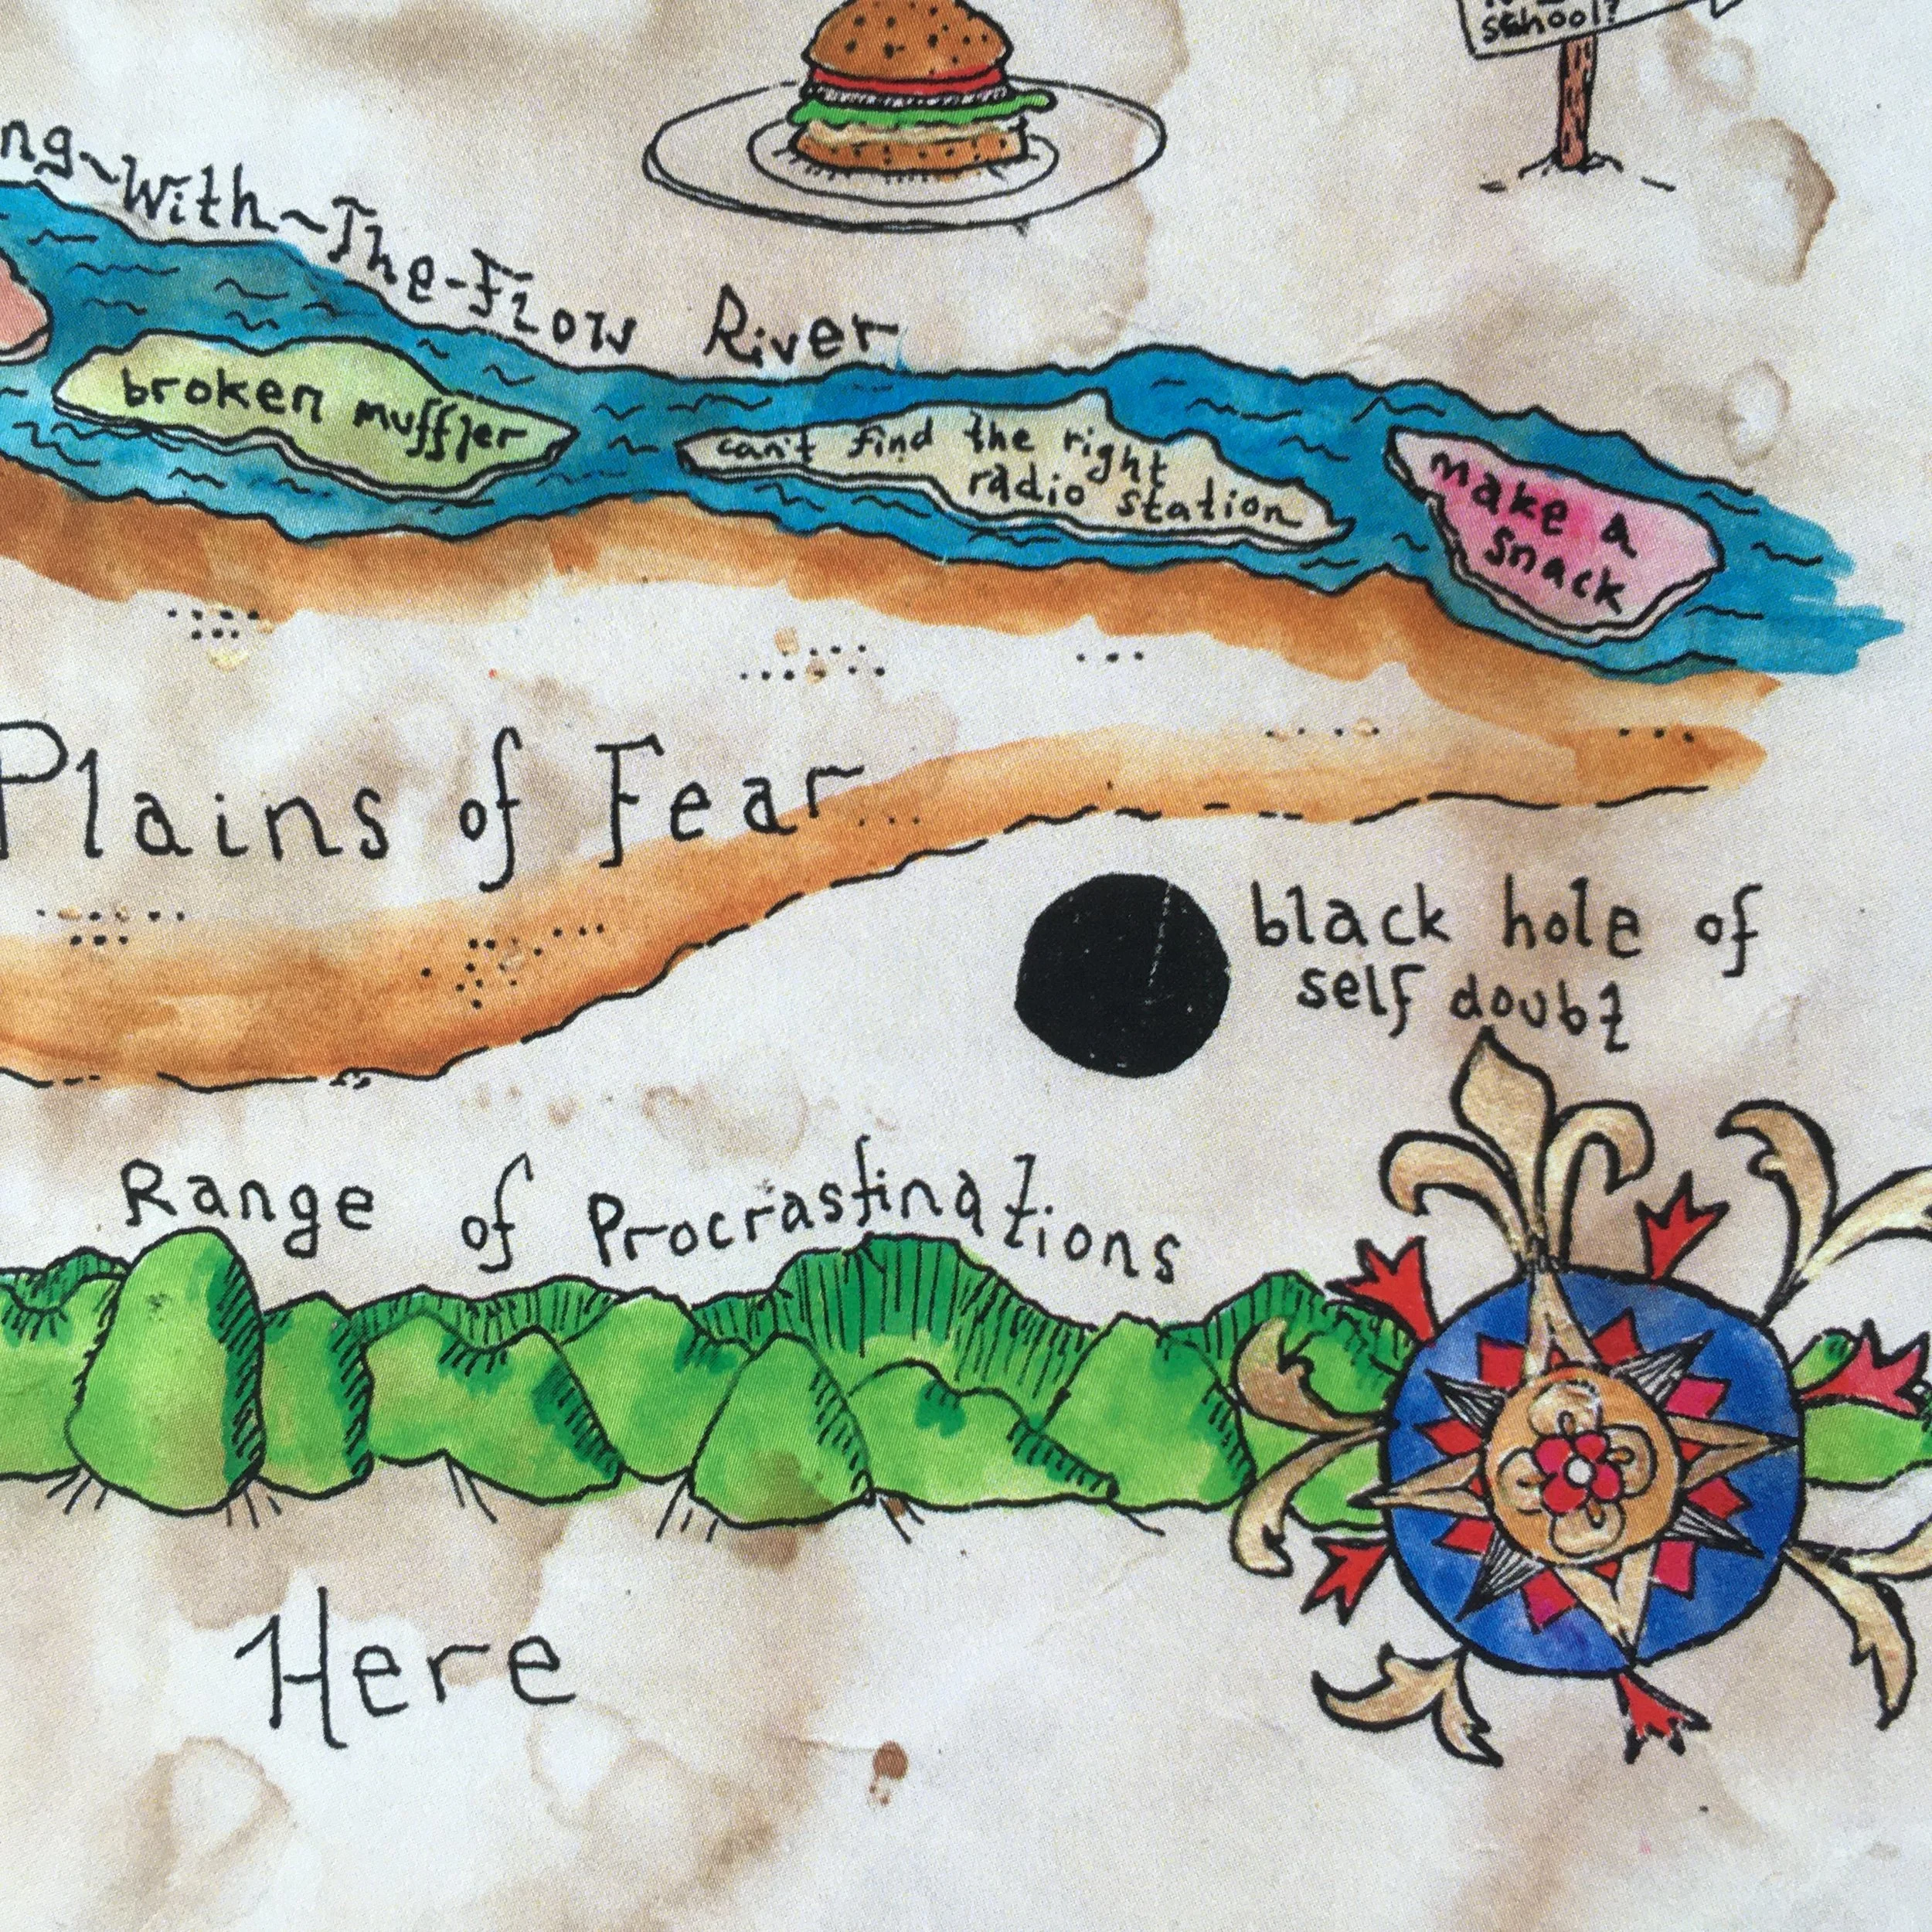 school?
ng~With~The-Flow River
broken muffler
can't find the right
radio station
make a
snack
Plains of Fear...
black hole of
self doubt
Range of Procrastinations
Here